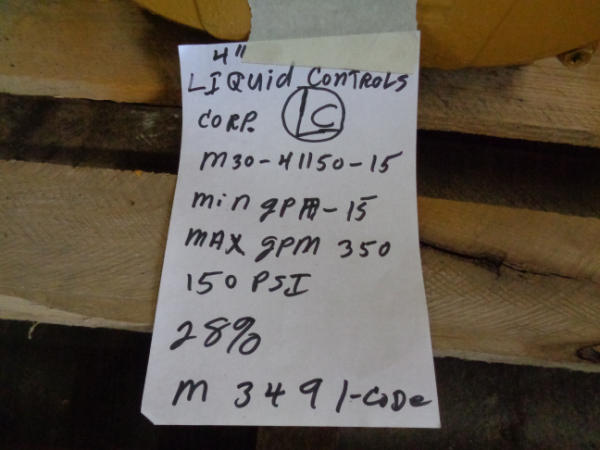 4"
LIQuid CONTROLS
CORP. LC
M30-41150-15
min gPM-15
MAX gPM 350
150 PSI
28%
M 3491-CODe